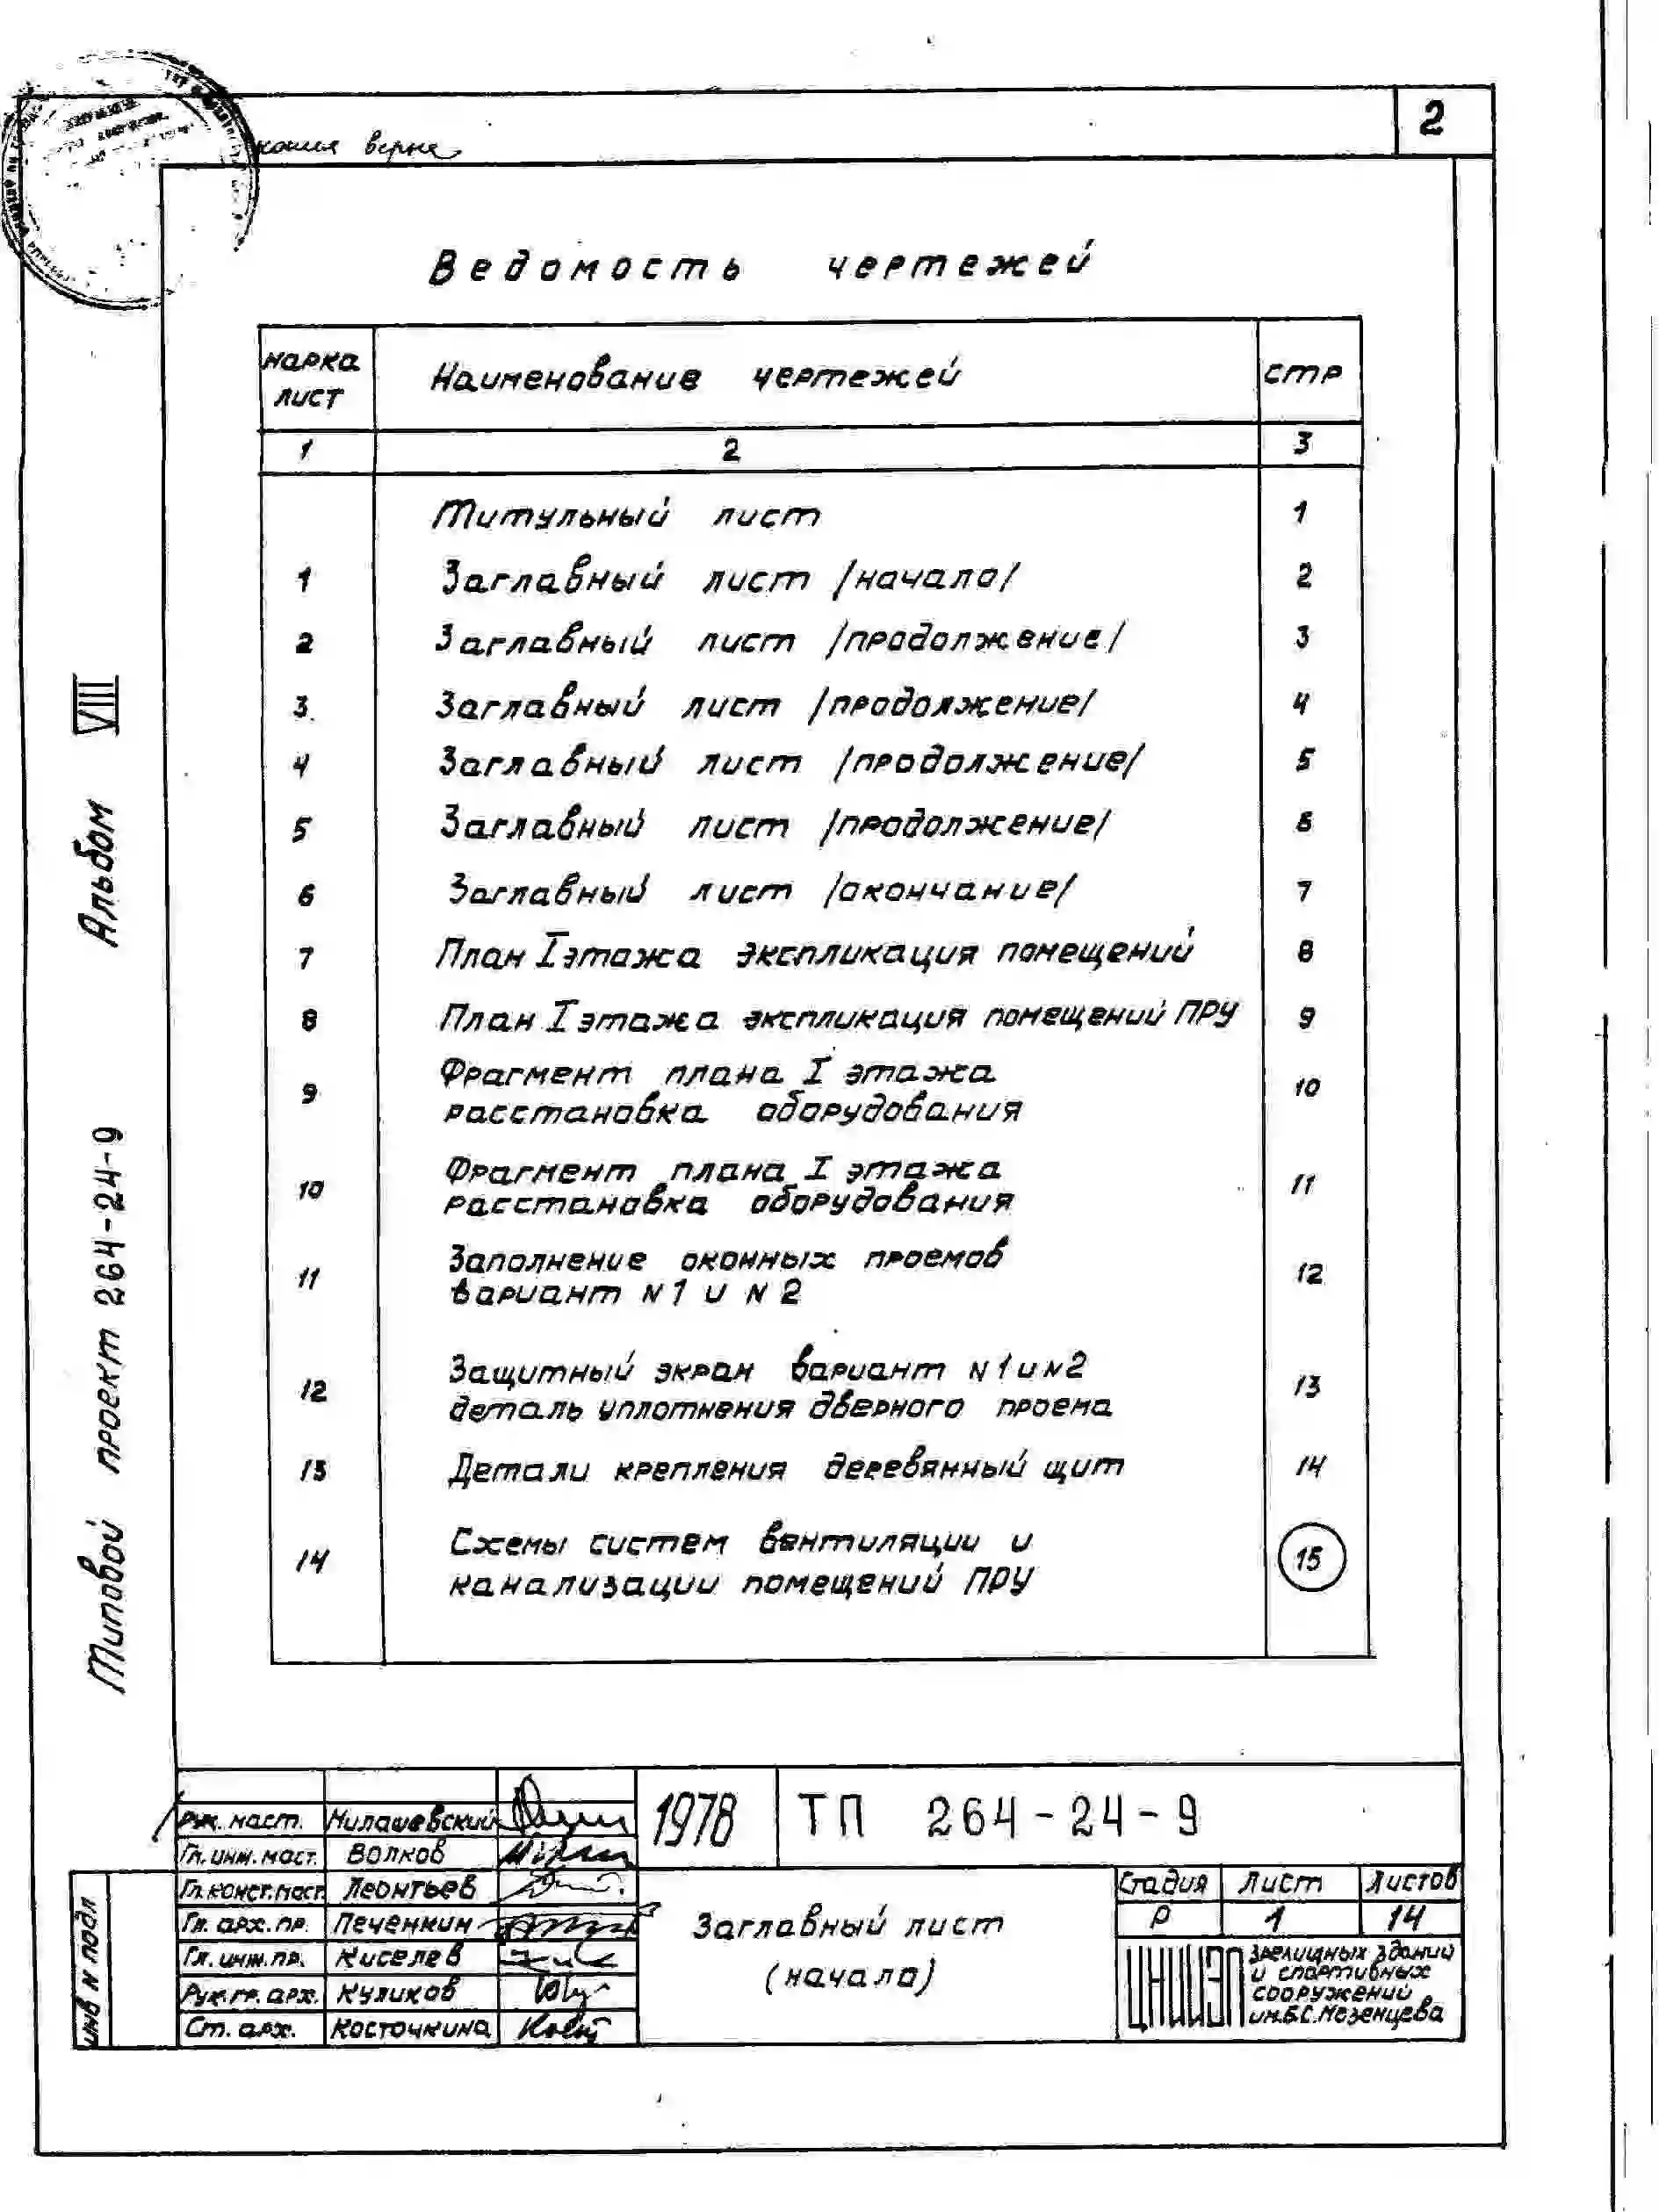 2
копия верна
Ведомость чертежей
марка лист
Наименование чертежей
стр
1 2 3
Титульный лист 1
1 Заглавный лист /начало/ 2
2 Заглавный лист /продолжение/ 3
3 Заглавный лист /продолжение/ 4
4 Заглавный лист /продолжение/ 5
5 Заглавный лист /продолжение/ 6
6 Заглавный лист /окончание/ 7
7 План I этажа экспликация помещений 8
8 План I этажа экспликация помещений ПРУ 9
9 Фрагмент плана I этажа 10
расстановка оборудования
10 Фрагмент плана I этажа 11
расстановка оборудования
11 Заполнение оконных проемов 12
вариант N1 и N2
12 Защитный экран вариант N1 и N2 13
деталь уплотнения дверного проема
13 Детали крепления деревянный щит 14
14 Схемы систем вентиляции и 15
канализации помещений ПРУ
Типовой проект 264-24-9 Альбом VIII
Рук. маст. Милашевский
Гл. инж. маст. Волков
Гл. конст. маст. Леонтьев
Гл. арх. пр. Печенкин
Гл. инж. пр. Киселев
Рук. гр. арх. Куликов
Ст. арх. Косточкина
1978
ТП 264-24-9
Заглавный лист
(начало)
Стадия Лист Листов
Р 1 14
ЦНИИЭП
зрелищных зданий
и спортивных
сооружений
им. Б.С. Мезенцева
инв N подл